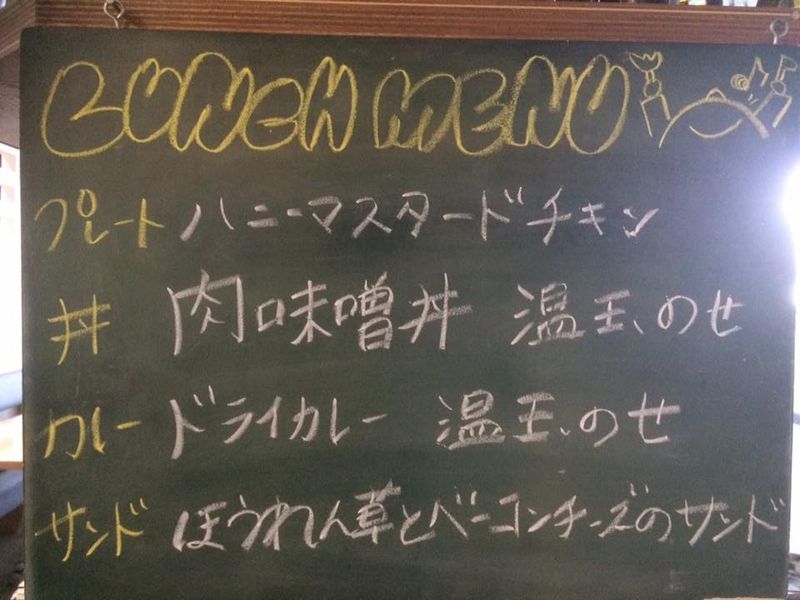 LUNCH MENU
プレート ハニーマスタードチキン
丼 肉味噌丼 温玉のせ
カレー ドライカレー 温玉のせ
サンド ほうれん草とベーコンチーズのサンド